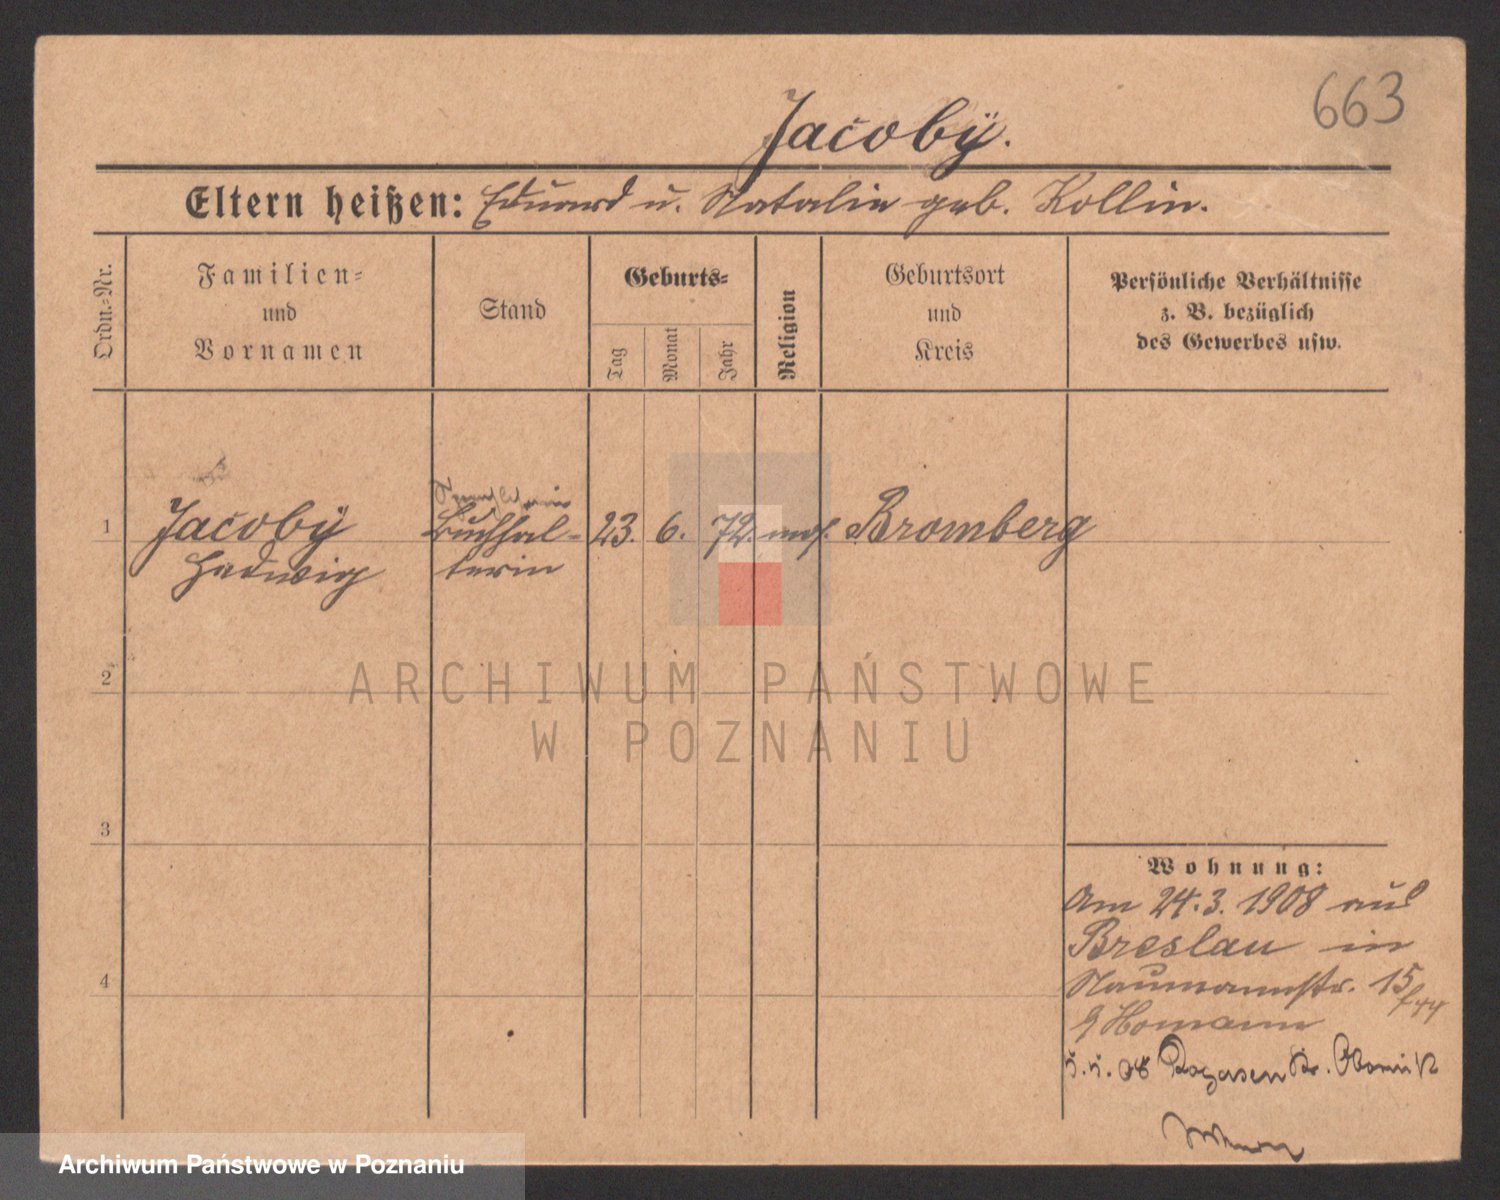 663
Jacoby.
Eltern heißen: Eduard u. Natalie geb. Kollin.
Ordn.-Nr.
Familien-
und
Vornamen
Stand
Geburts-
Tag
Monat
Jahr
Religion
Geburtsort
und
Kreis
Persönliche Verhältnisse
z. B. bezüglich
des Gewerbes usw.
1
Jacoby
Hedwig
Buchhal-
terin
23. 6. 72. mos. Bromberg
2
ARCHIWUM PAŃSTWOWE
W POZNANIU
3
4
Wohnung:
Am 24.3.1908 aus
Breslau in
Naumannstr. 15
Homann
5.5.08 Rogasen Kr. Obornik
Archiwum Państwowe w Poznaniu